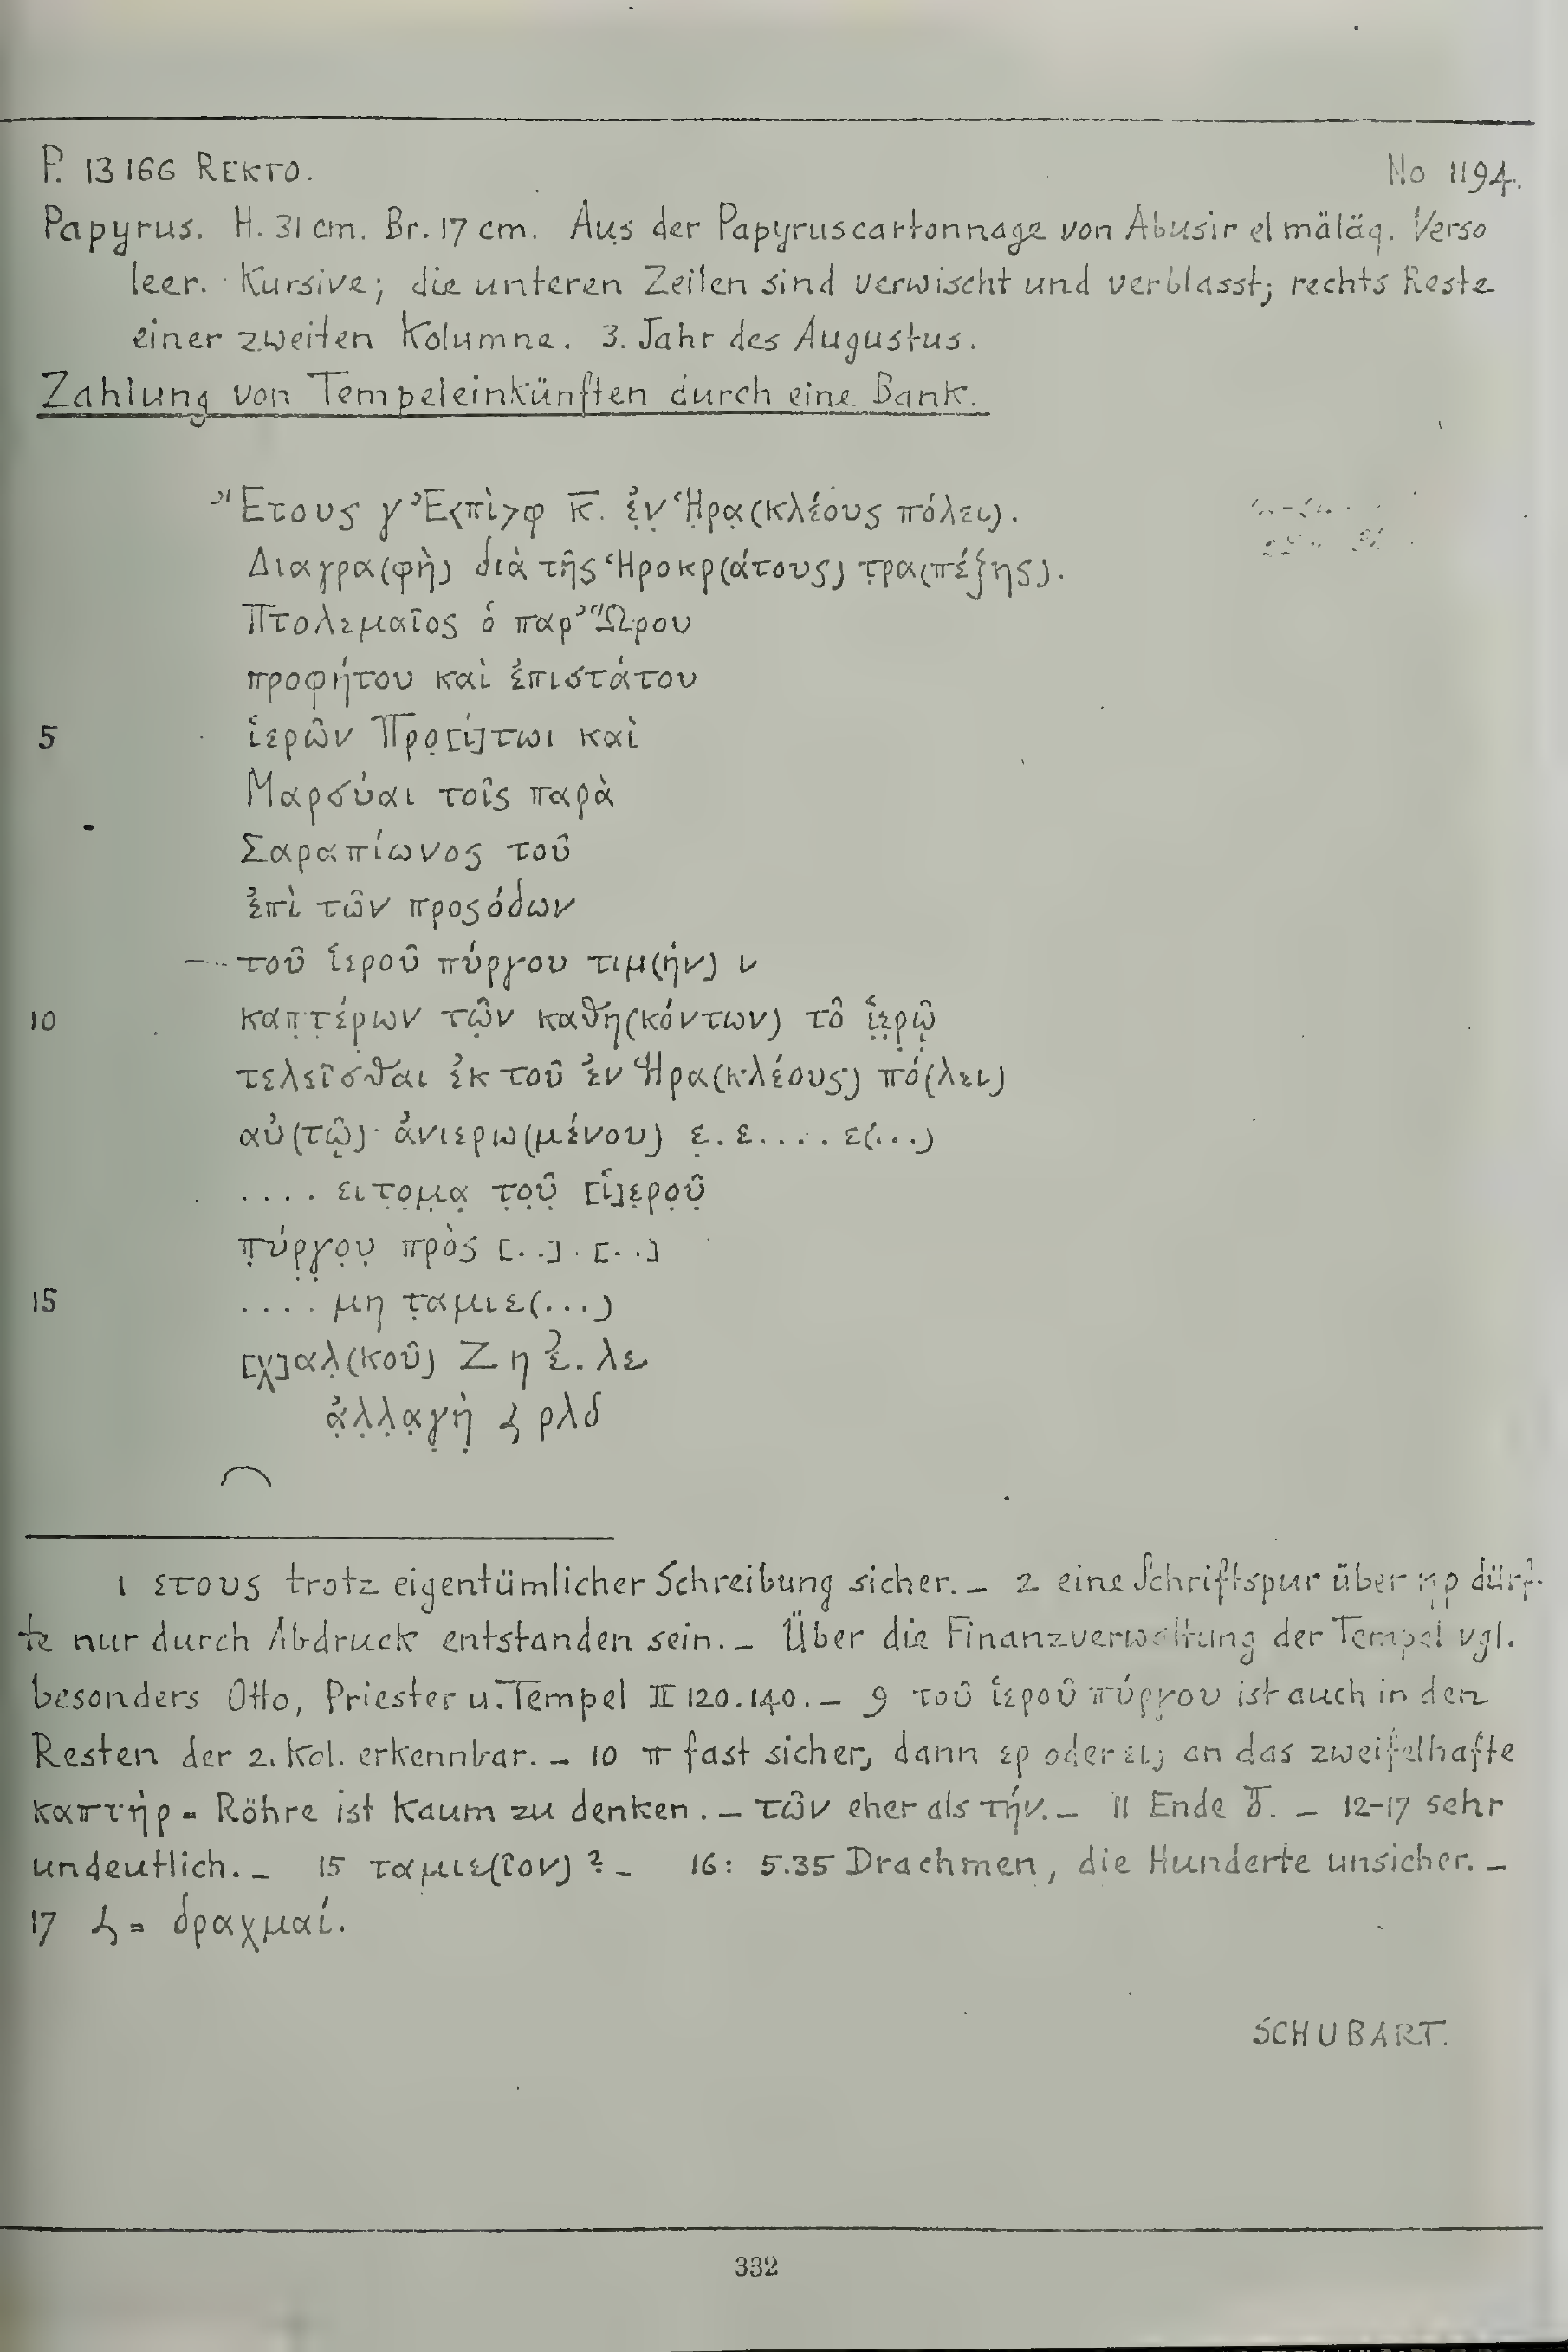 P. 13166 REKTO. No 1194.
Papyrus. H. 31 cm. Br. 17 cm. Aus der Papyruscartonnage von Abusir el mäläq. Verso
leer. Kursive; die unteren Zeilen sind verwischt und verblasst; rechts Reste
einer zweiten Kolumne. 3. Jahr des Augustus.
Zahlung von Tempeleinkünften durch eine Bank.
Ἔτους γ Ἐ<πὶ>φ κ̅. ἐ̣ν̣ Ἡ̣ρα̣(κλέους πόλει).
Διαγρα(φὴ) διὰ τῆς Ἡροκρ(άτους) τ̣ρα(πέζης).
Πτολεμαῖος ὁ παρ’ Ὥρου
προφήτου καὶ ἐπιστάτου
5 ἱερῶν Προ̣[ί]τωι καὶ
Μαρσύαι τοῖς παρὰ
Σαραπίωνος τοῦ
ἐπὶ τῶν προςόδων
τοῦ ἱεροῦ πύργου τιμ(ὴν) ν
10 καπ̣τ̣έρ̣ων τῶ̣ν καθη(κόντων) τô ἱ̣ε̣ρ̣ῷ̣
τελεῖσθαι ἐκ τοῦ ἐν Ἡρα(κλέους) πό(λει)
αὐ(τῷ) ἀνιερω(μένου) ε̣.ε....ε(...)
....ειτ̣ο̣μ̣α̣ τ̣ο̣ῦ̣ [ἱ]ε̣ρ̣ο̣ῦ̣
π̣ύρ̣γ̣ο̣υ̣ πρὸς [..].[..]
15 ....μη τ̣αμιε(...)
[χ]αλ̣(κοῦ) Ζ η ἐ.λε
ἀ̣λ̣λ̣α̣γ̣ὴ̣ ʆ ρλδ
1 ετους trotz eigentümlicher Schreibung sicher. – 2 eine Schriftspur über ηρ dürf-
te nur durch Abdruck entstanden sein. – Über die Finanzverwaltung der Tempel vgl.
besonders Otto, Priester u. Tempel II 120.140. – 9 τοῦ ἱεροῦ πύργου ist auch in den
Resten der 2. Kol. erkennbar. – 10 π fast sicher, dann ερ oder ει; an das zweifelhafte
καπτὴρ = Röhre ist kaum zu denken. – τῶν eher als τήν. – 11 Ende . – 12-17 sehr
undeutlich. – 15 ταμιε(ῖον)? – 16: 5.35 Drachmen, die Hunderte unsicher. –
17 ʆ = δραχμαί.
SCHUBART.
332